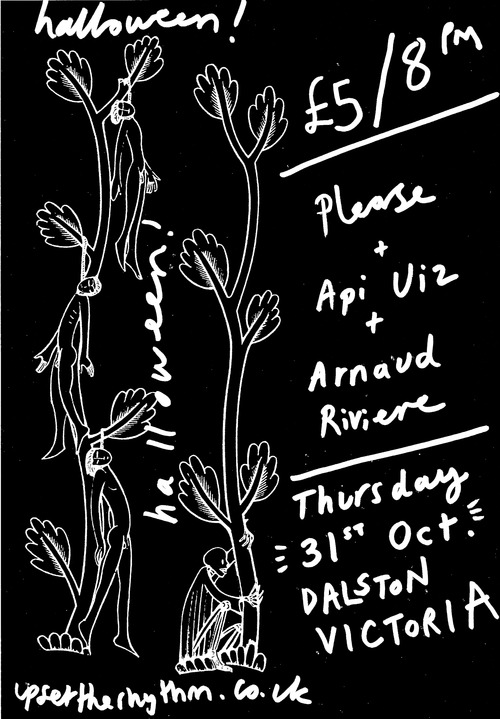 halloween!
£5/8PM
Please
+
Api Uiz
+
Arnaud
Riviere
halloween!
Thursday
31ST Oct.
DALSTON
VICTORIA
upsettherhythm.co.uk